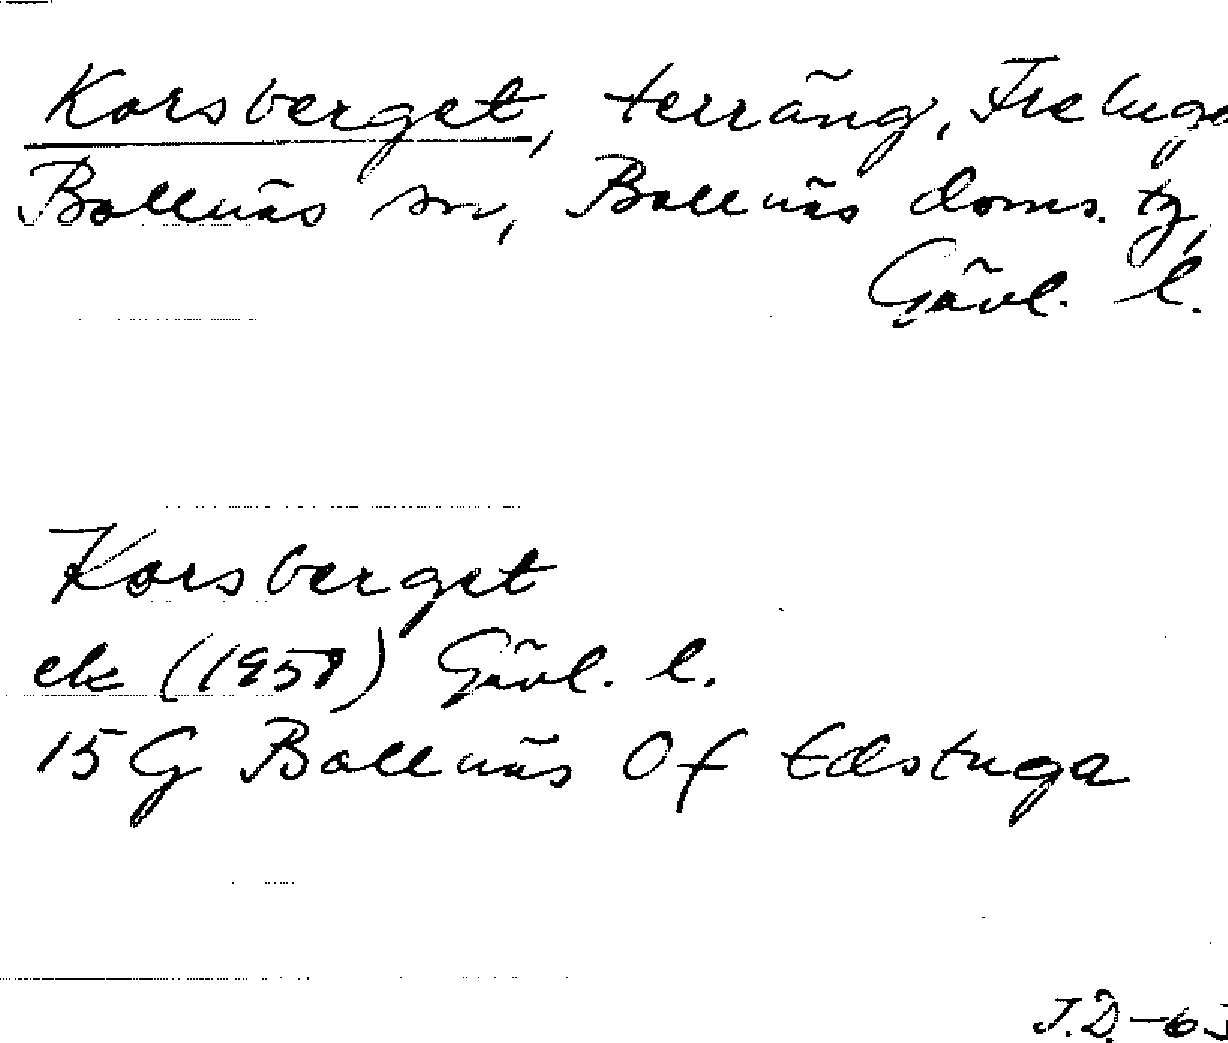 Korsberget, terräng, Freluga
Bollnäs sn, Bollnäs doms. tg,
Gävl. l.
Korsberget
ek (1958) Gävl. l.
15 G Bollnäs 0 f Edstuga
J.D.-6